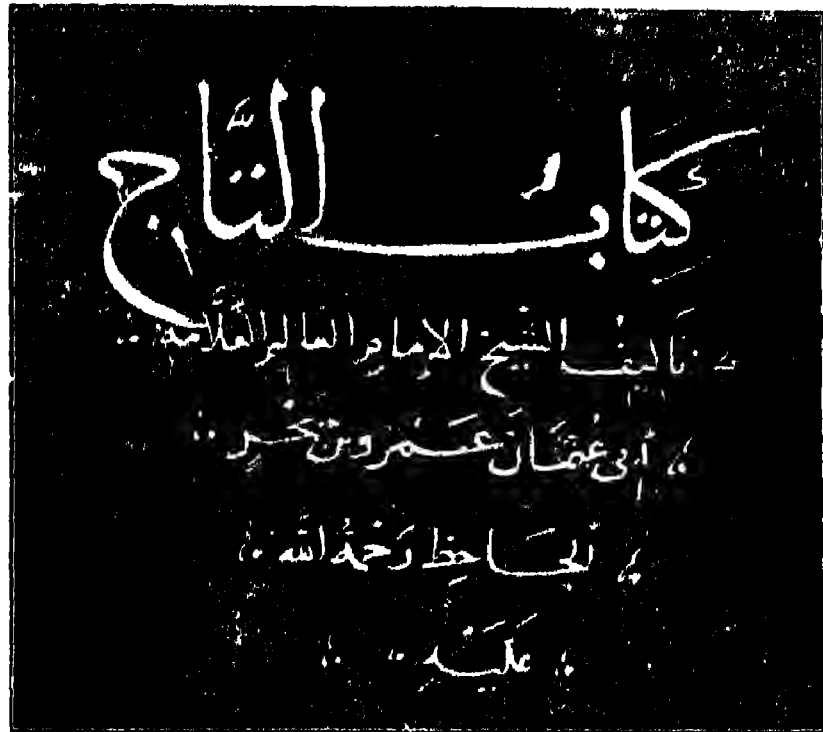 كِتَابُ التَّاج
تأليف الشيخ الإمام العالم العلّامة
أبى عُثمَانَ عَمْرو بن بَحْرٍ
الجَاحِظ رَحْمَةُ الله
عَلَيْهِ